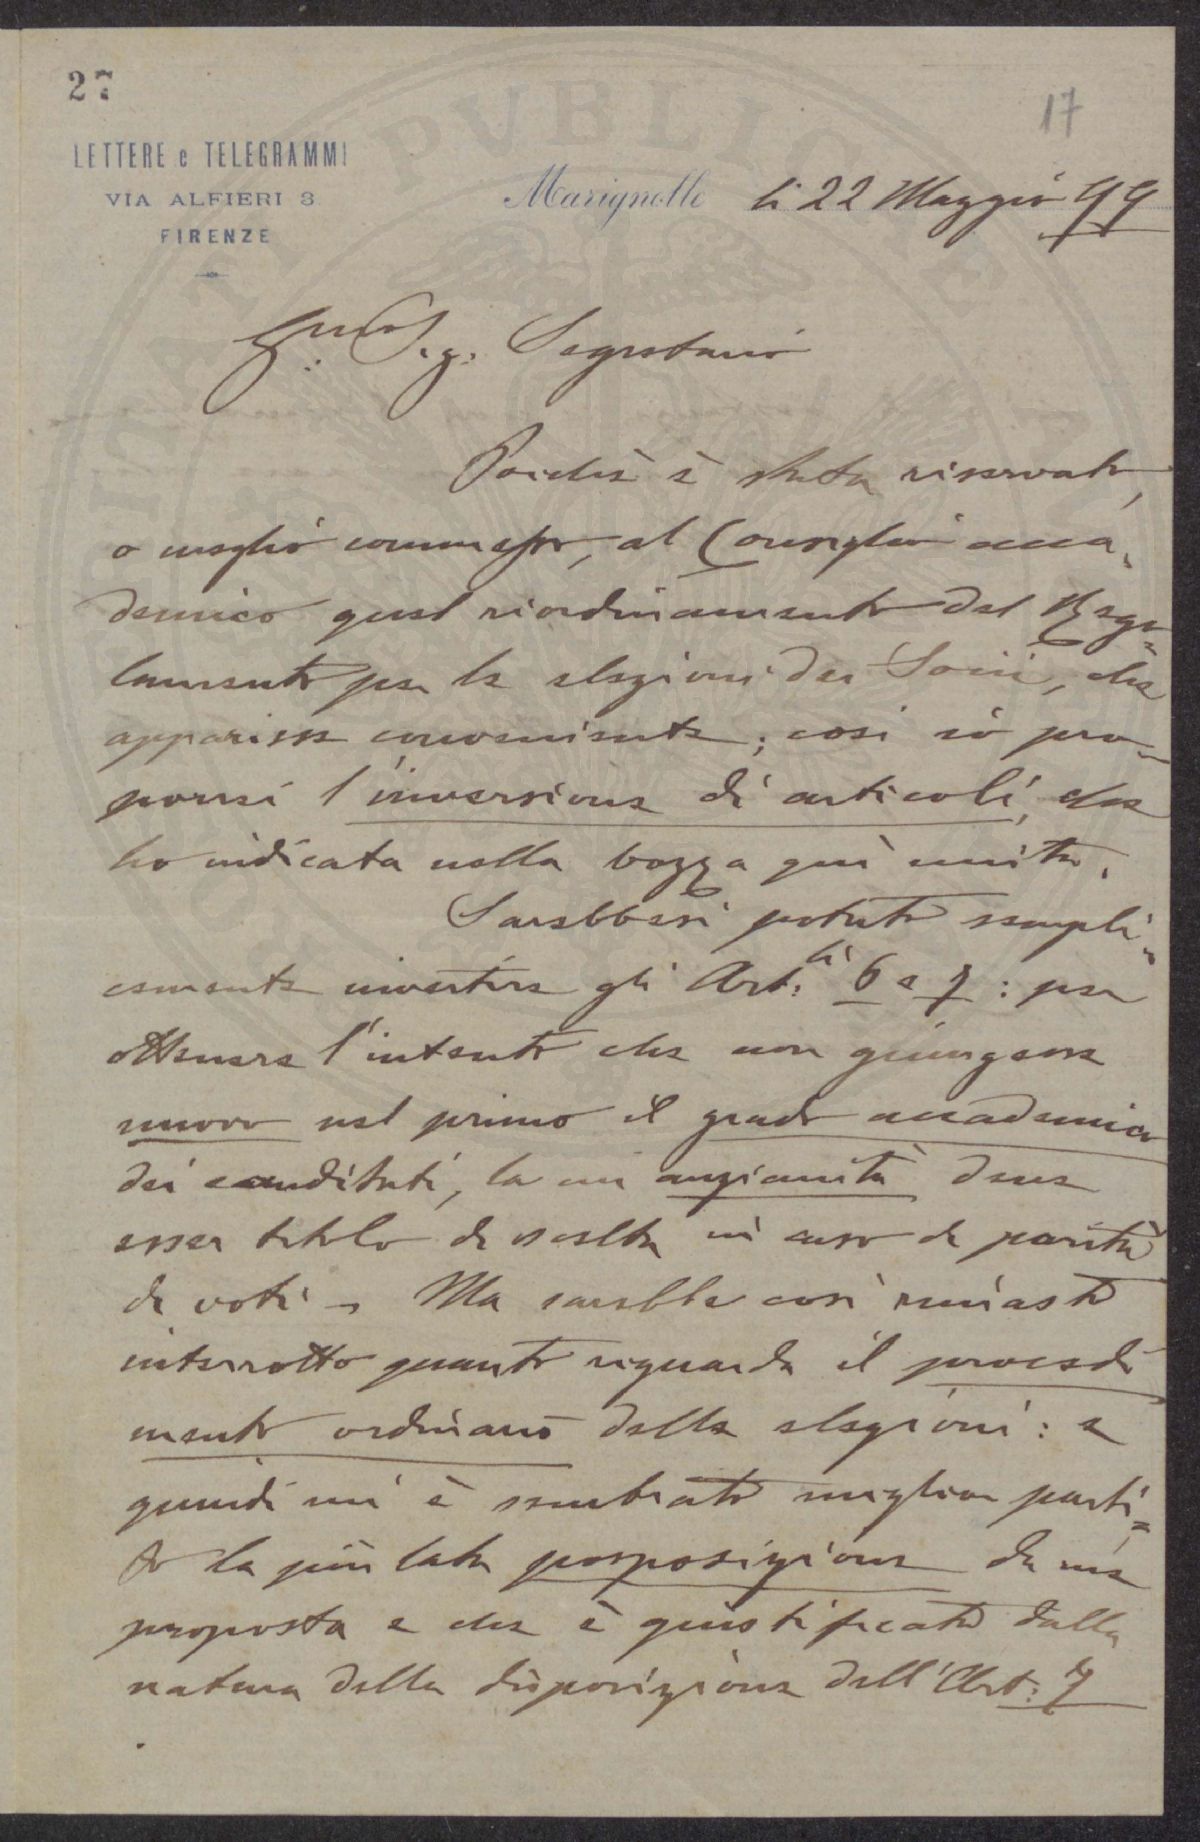 27
17
LETTERE e TELEGRAMMI
VIA ALFIERI 3
FIRENZE
Marignolle li 22 Maggio 99
Sig. Segretario
Poichè è stata riservato,
o meglio commesso, al Consiglio acca-
demico quel riordinamento del Rego-
lamento per le elezioni dei Socii, che
apparisse conveniente; così io pro-
porrei l'inversione di articoli, che
ho indicata nella bozza qui unita.
Sarebbesi potuto sempli-
cemente invertire gli Art.li 6 e 7: per
ottenere l'intento che non giungesse
nuovo nel primo il grado accademico
dei candidati, la cui anzianità deve
esser titolo di scelta in caso di parità
di voti - Ma sarebbe così rimasto
interrotto quanto riguarda il procedi
mento ordinario delle elezioni: e
quindi mi è sembrato miglior parti-
to la più lata posposizione da me
proposta e che è giustificata dalla
natura della disposizione dell'Art: 7